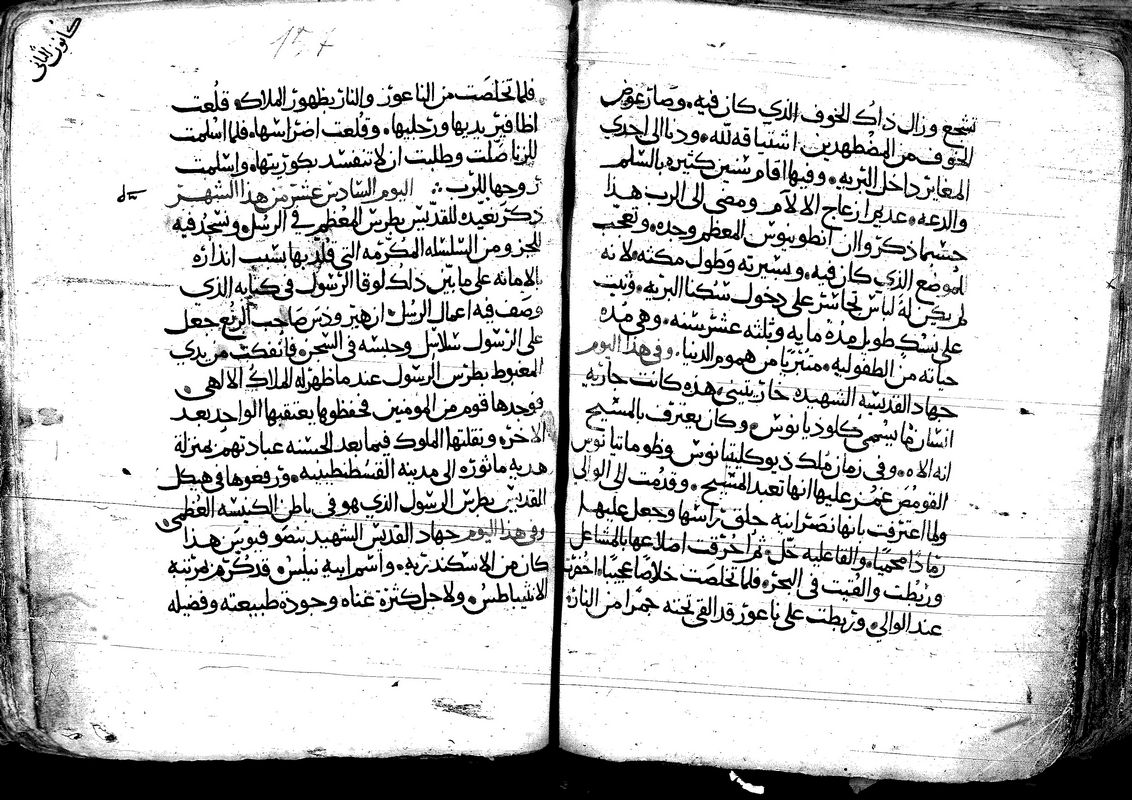 تشجع وزال داك الخوف الدي كان فيه. وصار عوض
الخوف من المضطهدين اشتياقه لله. ودنا الى احدي
المغاير داخل التربه. وفيها اقام سنين كتيره بالسلم
والدعه. عديم ازعاج الالام ومضى الى الرب هدا
حسبما ذكروا ان انطونيوس المعظم وحده. وتعجب
للموضع الذي كان فيه. وبسيرته وطول مكثه. لانه
لم يكن له لباس تجاسر على دخول سكنا البريه. وثبت
على نسك طويل مدة مايه وثلثه عشر سنه. وهي مده
حياته من الطفوليه. متبريا من هموم الدنيا. وفي هدا اليوم
جهاد القديسه الشهيده خاريتيني. هده كانت جاريه
انسان ما يسمى كلوديانوس. وكان يعترف بالمسيح
انه الاه. وفي زمان ملك ذيوكليتيانوس وظوماتيانوس
القومص غمز عليها انها تعبد المسيح. وقدمت الى الوالي
ولما اعترفت بانها نصرانيه حلق راسها وجعل عليها
رمادا محميا. والقا عليه خل. ثم احرقت اضلاعها بالمشاعل
وربطت والقيت في البحر. فلما تخلصت خلاصا عجيبا. احضرت
عند الوالي. وربطت على ناعور قد القى تحته جمرا من النار.
كانون الثاني
157
فلما تخلصت من الناعور والنار بظهور الملاك. قلعت
اظافير يديها ورجليها. وقلعت اضراسها. فلما اسلمت
للزنا صلت وطلبت ان لا تنفسد بكوريتها. واسلمت
روحها للرب. اليوم السادس عشر من هدا الشهر
ذكر تعييد للقديس بطرس المعظم في الرسل. ونسجد فيه
للجزو من السلسله المكرمه التي قلد بها بسبب انذاره
بالامانه على ما بين داك لوقا الرسول في كتابه الدي
وصف فيه اعمال الرسل. ان هيرودس صاحب الربع جعل
على الرسول سلاسل وحبسه في السجن. فانفكت من يدي
المغبوط بطرس الرسول عند ما ظهر له الملاك الالهي.
فوجدها قوم من المومنين فحفظوها يعتقبها الواحد بعد
الاخر. ونقلتها الملوك فيما بعد الحسنه عبادتهم بمنزلة
هديه ماثوره الى مدينة القسطنطينيه. ورفعوها في هيكل
القديس بطرس الرسول الذي هو في باطن الكنيسه العظمى.
وفي هدا اليوم جهاد القديس الشهيد هدا
كان من الاسكندريه. واسم ابيه نيلس. قد كرم بمرتبة
الانثيباطس. ولاجل كثرة غناه وجودة طبيعته وفضيله